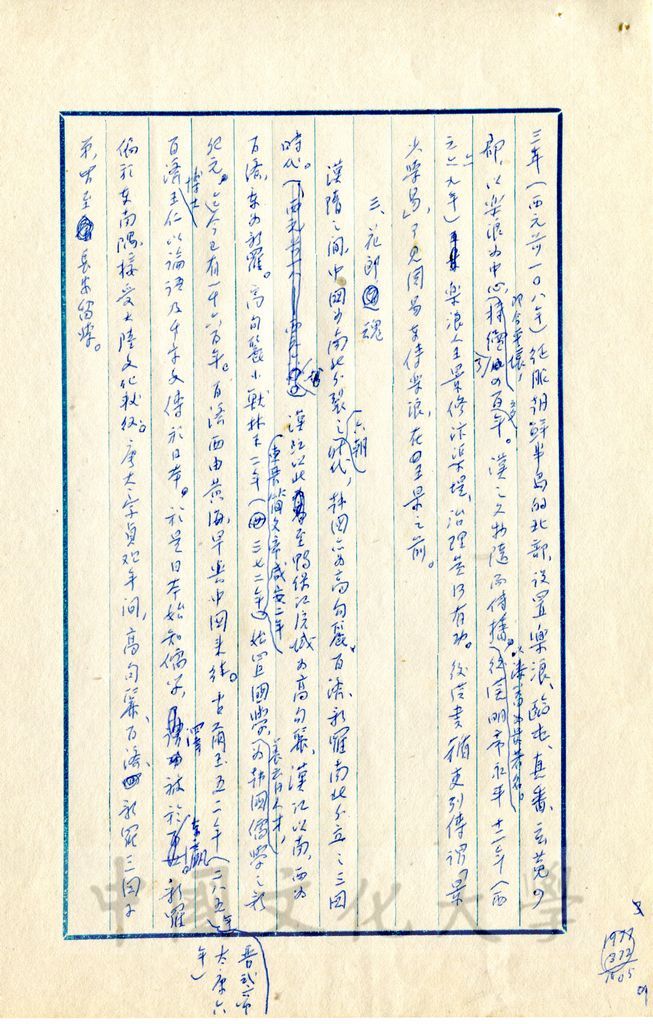 三年(西元前一〇八年)征服朝鮮半島的北部,設置樂浪、臨屯、真番、玄菟四
郡,以樂浪為中心,四百年。漢之文物隨而傳播。後漢明帝永平十二年(西
元六九年)樂浪人王景修汴渠堤,治理甚有功。後漢書循吏列傳謂「景
少學易」,可見周易東傳樂浪,在王景之前。
三、花郎魂
漢隋之間,中國為南北分裂之六朝時代,韓國亦為高句麗、百濟、新羅南北分立之三國
時代。漢江以北至鴨綠江流域為高句麗,漢江以南,西為
百濟,東為新羅。高句麗小獸林王二年(東晉簡文帝咸安二年 西三七二年)始置國學,養育人才,為韓國儒學之新
紀元。迄今已有一千六百年。百濟西由黃海,早與中國來往。古爾王五二年(二八五年 晉武帝太康六年)
百濟博士王仁以論語及千字文傳於日本。於是日本始知儒學,澤被於東瀛。新羅
偏於東南隅,接受大陸文化較後。唐太宗貞觀年間,高句麗、百濟、新羅三國子
弟,曾至長安留學。
1977
372
1605
中國文化大學